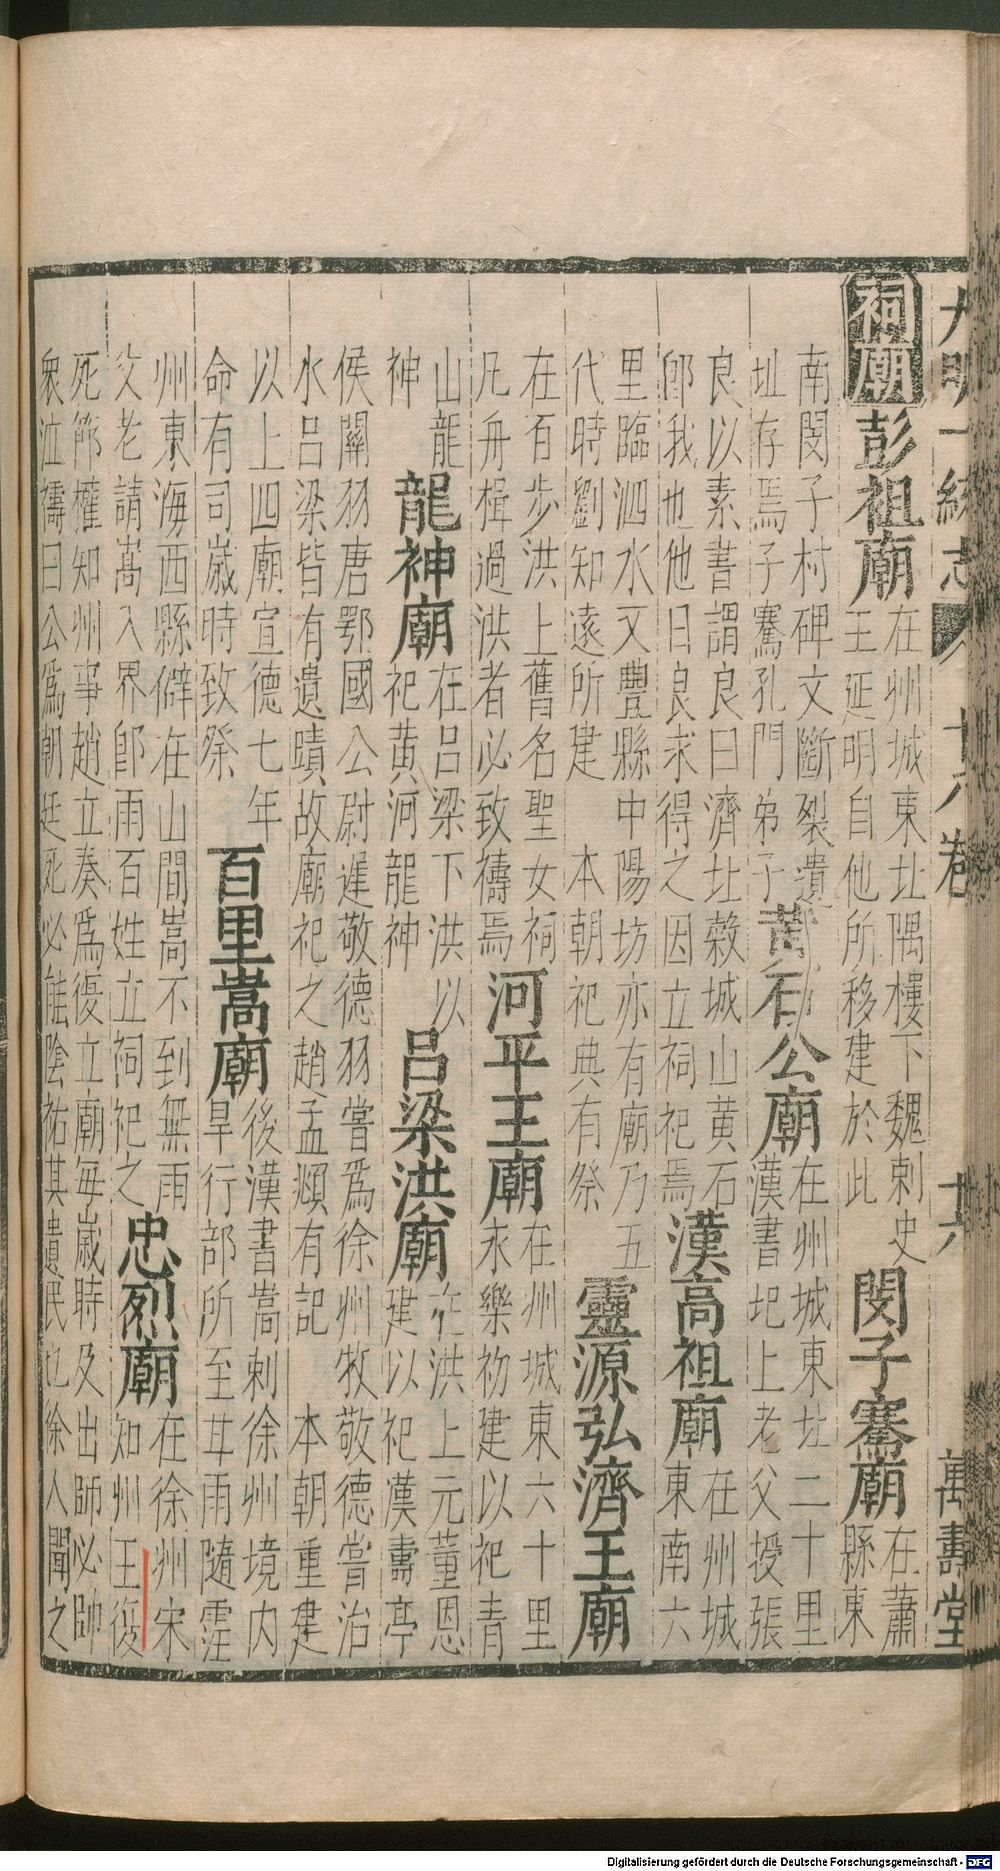 大明一統志 十八卷 十六 萬壽堂
祠廟 彭祖廟 在州城東北隅樓下魏刺史王延明自他所移建於此 閔子騫廟 在蕭縣東
南閔子村碑文斷裂遺址存焉子騫孔門弟子 黃石公廟 在州城東北二十里漢書圯上老父授張
良以素書謂良曰濟北榖城山黄石卽我也他日良求得之因立祠祀焉 漢高祖廟 在州城東南六
里臨泗水又豐縣中陽坊亦有廟乃五代時劉知遠所建 本朝祀典有祭 靈源弘濟王廟
在百步洪上舊名聖女祠凡舟楫過洪者必致禱焉 河平王廟 在州城東六十里永樂初建以祀青
山龍神 龍神廟 在呂梁下洪以祀黄河龍神 呂梁洪廟 在洪上元董恩建以祀漢壽亭
侯關羽唐鄂國公尉遲敬德羽嘗爲徐州牧敬德嘗治水呂梁皆有遺蹟故廟祀之趙孟頫有記 本朝重建
以上四廟宣德七年命有司歲時致祭 百里嵩廟 後漢書嵩刺徐州境内旱行部所至甘雨隨霔
州東海西縣僻在山間嵩不到無雨父老請嵩入界卽雨百姓立祠祀之 忠烈廟 在徐州宋知州王復
死節權知州事趙立奏爲復立廟每歲時及出師必帥衆泣禱曰公爲朝廷死必能陰祐其遺民也徐人聞之
Digitalisierung gefördert durch die Deutsche Forschungsgemeinschaft - DFG